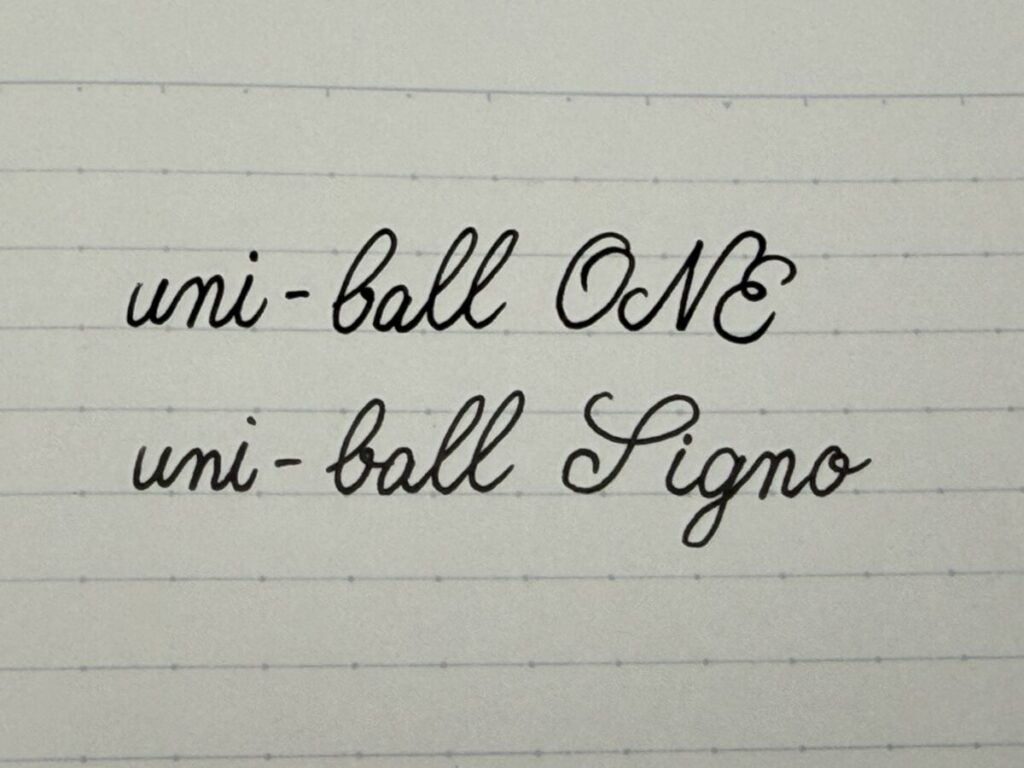 uni-ball ONE
uni-ball Signo